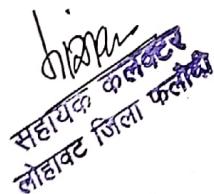 सहायक कलेक्टर
लोहावट जिला फलौदी